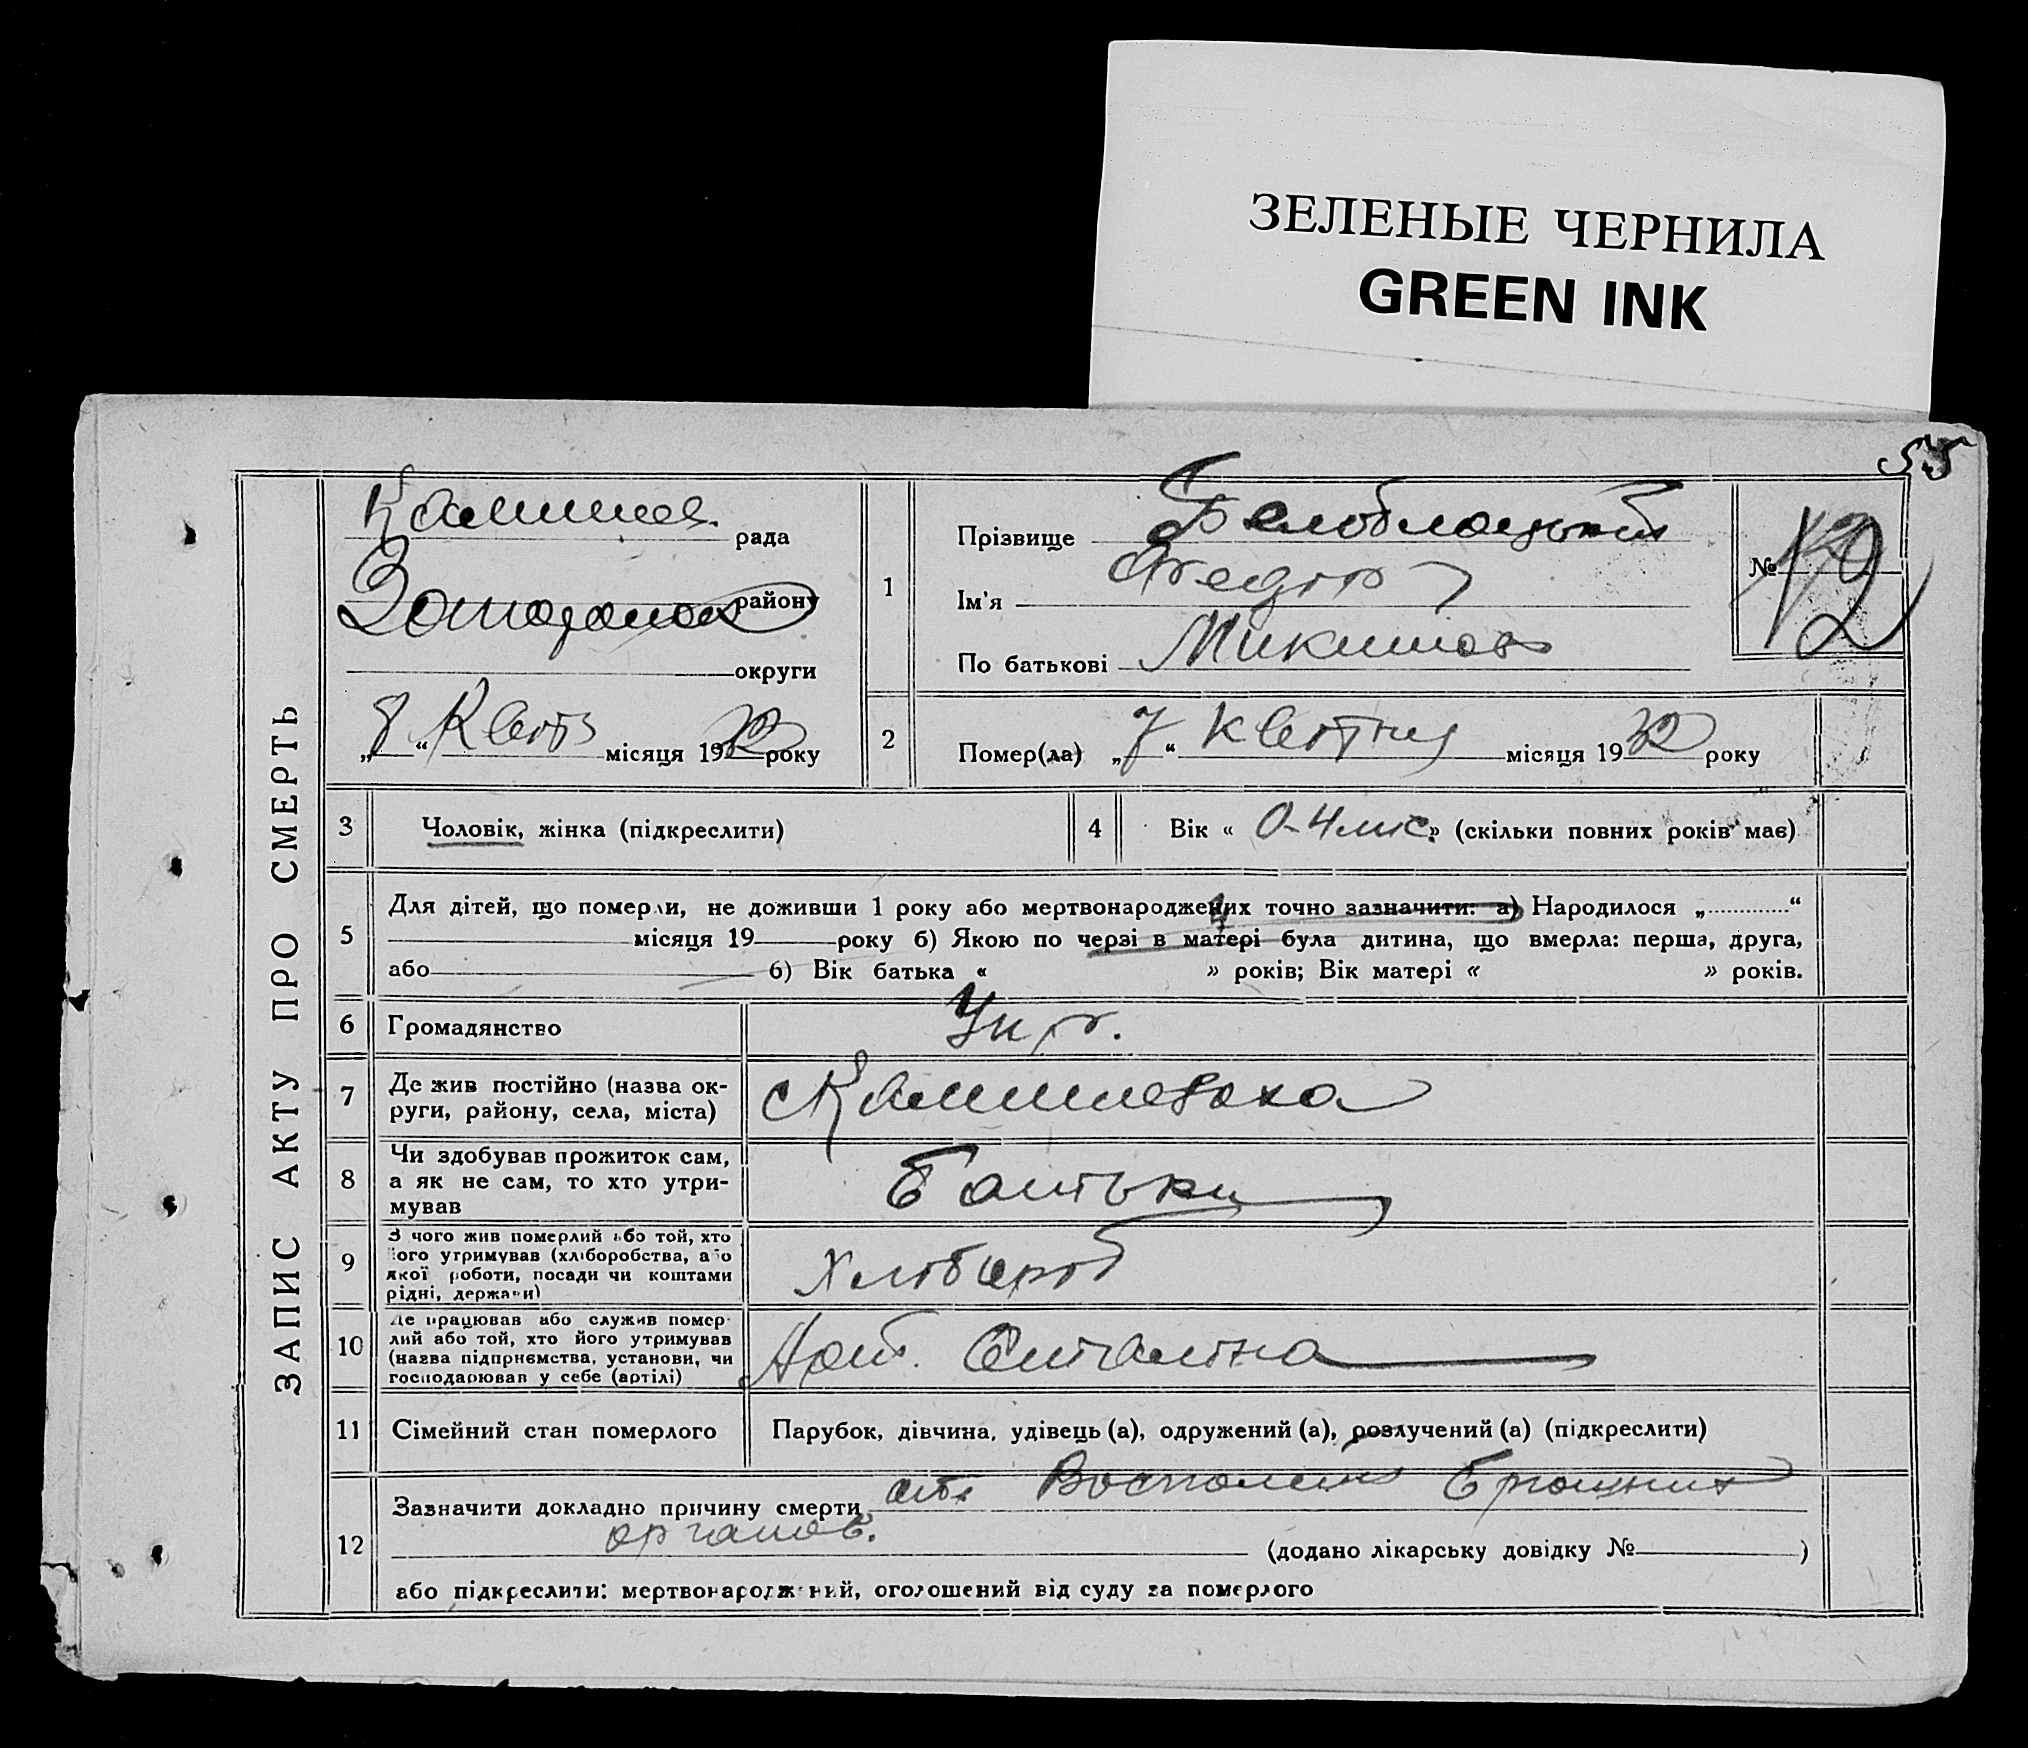 ЗЕЛЕНЫЕ ЧЕРНИЛА
GREEN INK
55
ЗАПИС АКТУ ПРО СМЕРТЬ
рада
району
округи
„8“ Квіт місяця 1932 року
1
Прізвище
Ім'я Федір
По батькові
№ 12
2
Помер(ла) „7“ Квітня місяця 1932 року
3
Чоловік, жінка (підкреслити)
4
Вік « 0-4 міс. » (скільки повних років має)
5
Для дітей, що померли, не доживши 1 року або мертвонароджених точно зазначити: а) Народилося „ “
місяця 19 року б) Якою по черзі в матері була дитина, що вмерла: перша, друга,
або б) Вік батька « » років; Вік матері « » років.
6
Громадянство
Укр.
7
Де жив постійно (назва ок-
руги, району, села, міста)
с Камишеваха
8
Чи здобував прожиток сам,
а як не сам, то хто утри-
мував
Батьки
9
З чого жив померлий або той, хто
його утримував (хліборобства, або
якої роботи, посади чи коштами
рідні, держави)
Хлібороб
10
Де працював або служив помер-
лий або той, хто його утримував
(назва підприємства, установи, чи
господарював у себе (артілі)
Арт. Сталіна
11
Сімейний стан померлого
Парубок, дівчина, удівець (а), одружений (а), розлучений (а) (підкреслити)
12
Зазначити докладно причину смерти от Воспален Брюшних
органов.
(додано лікарську довідку № )
або підкреслити: мертвонароджений, оголошений від суду за померлого